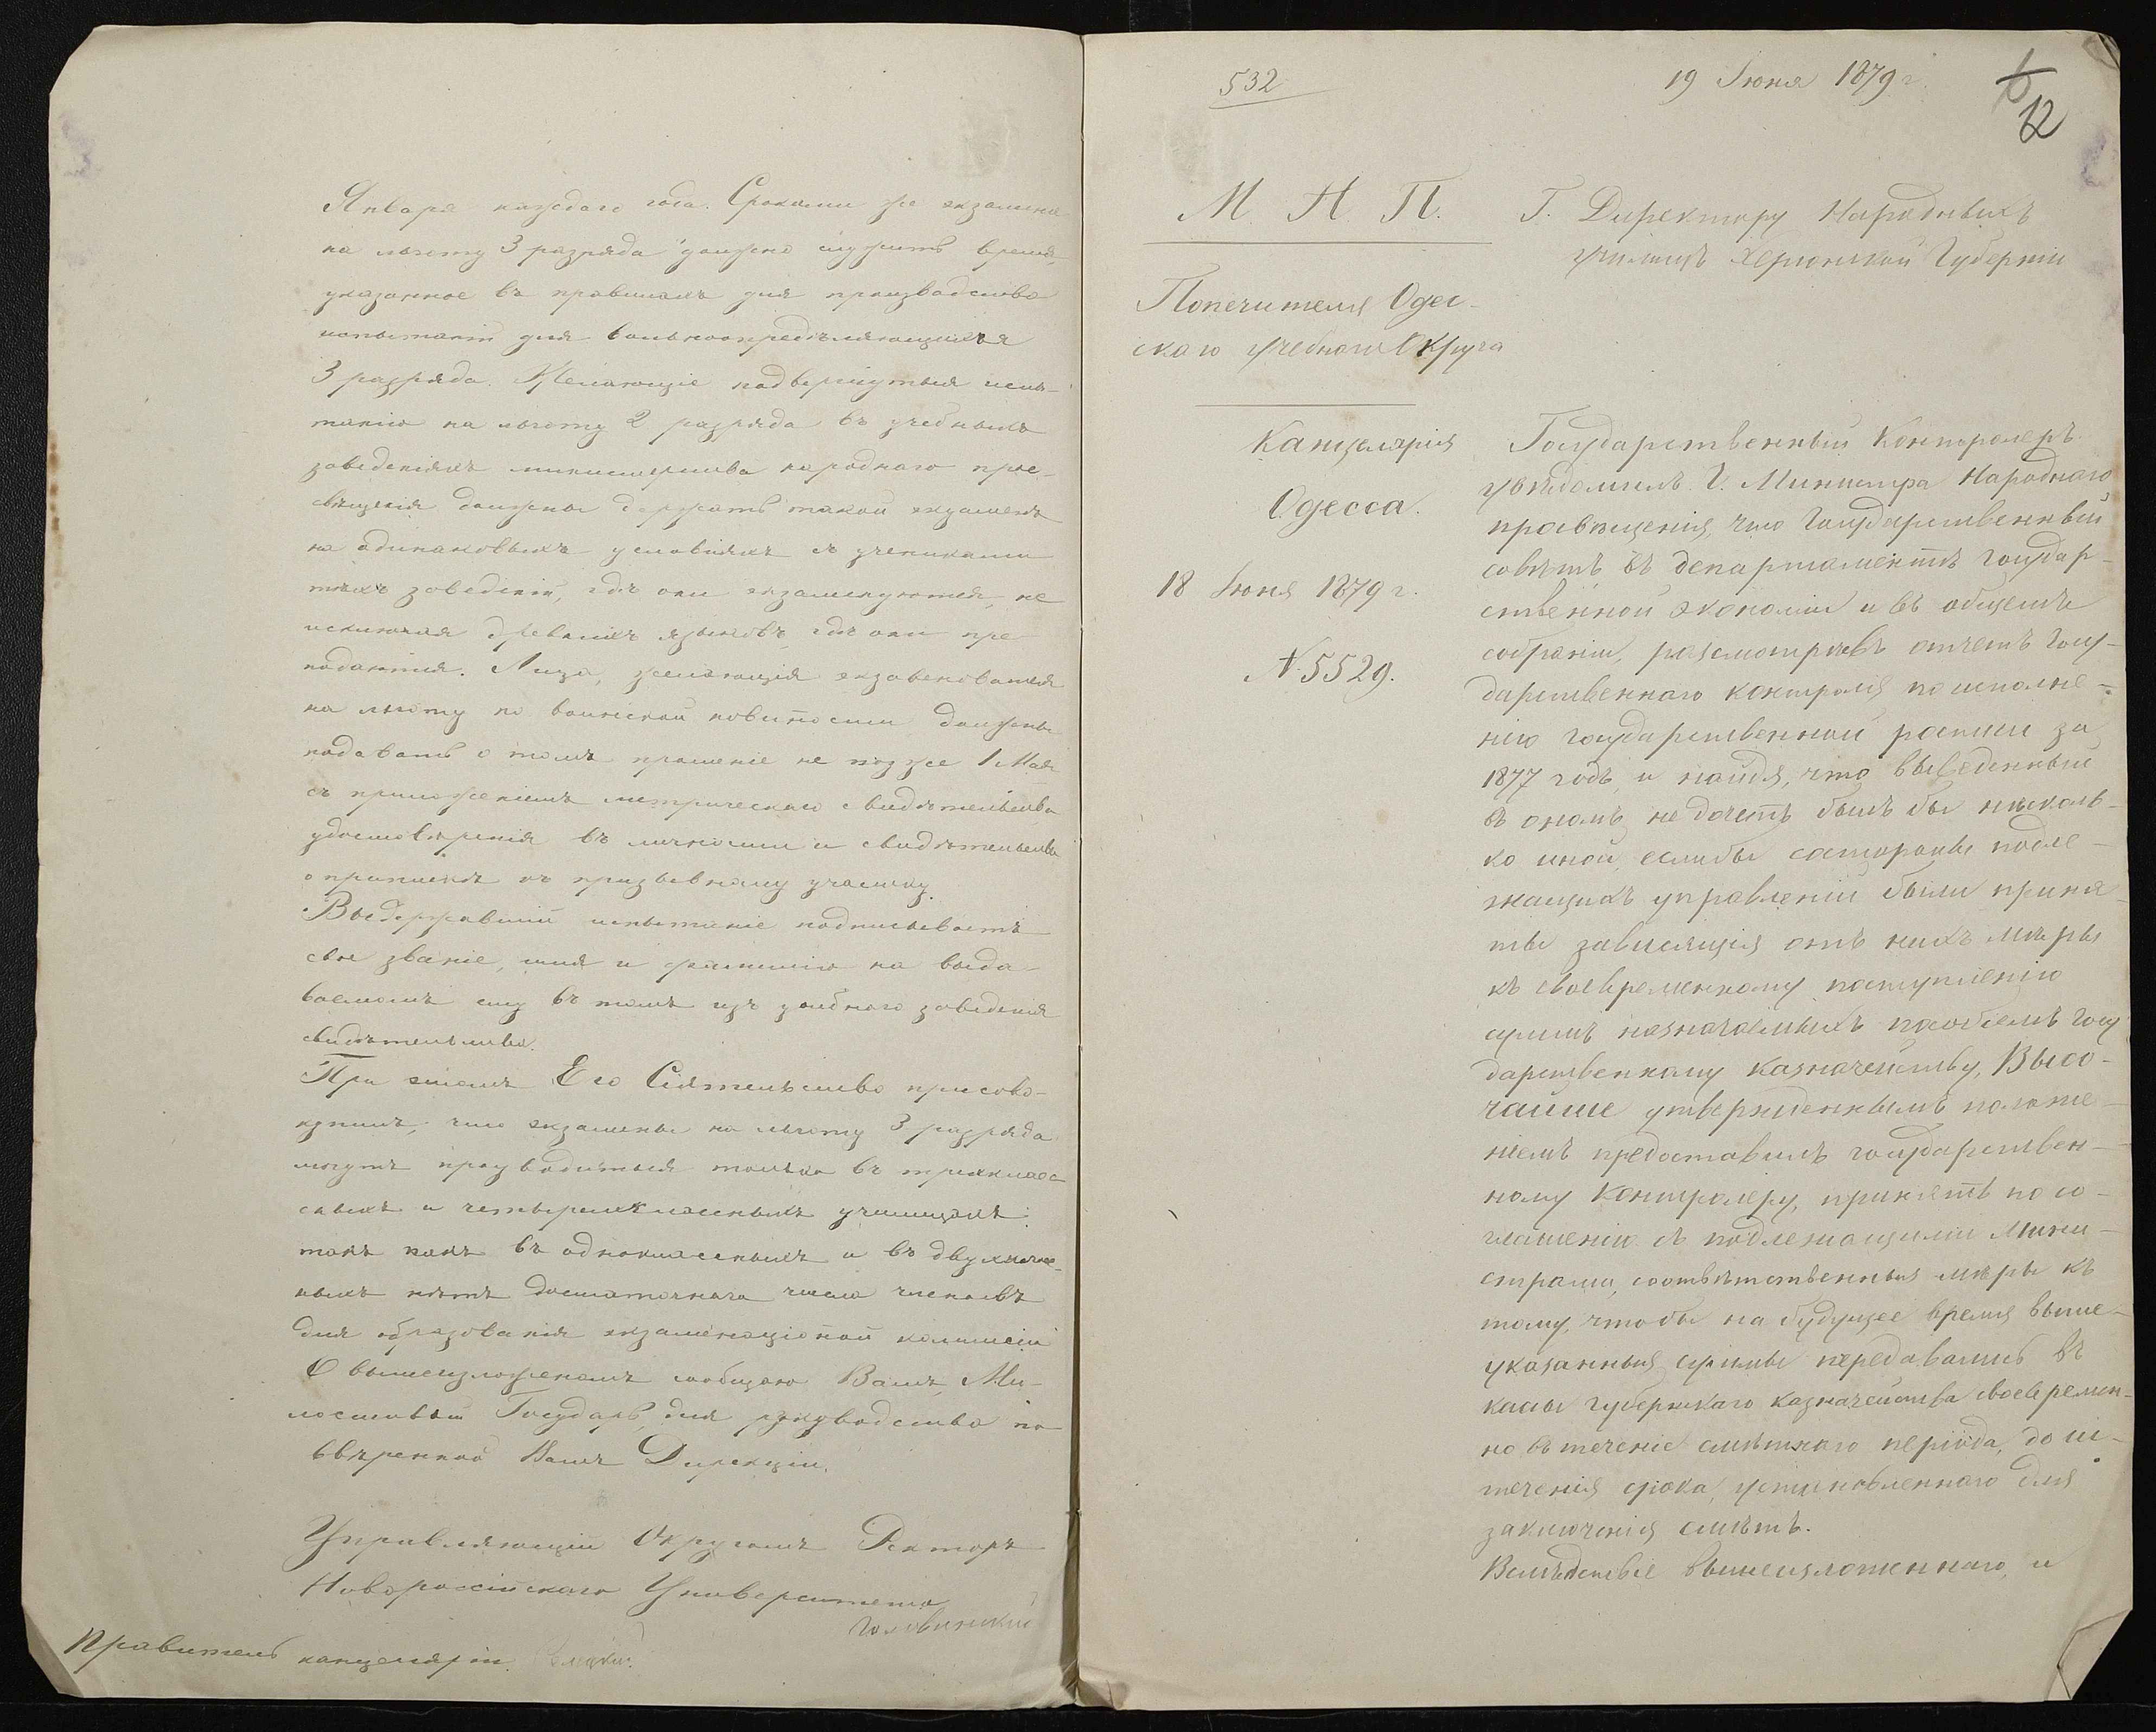 Января каждаго года. Сроками же экзамена
на льготу 3 разряда должно служить время,
указанное въ правилахъ для производства
испытаній для вольноопредѣляющихся
3 разряда. Желающіе подвергнутся испы-
танію на льготу 2 разряда въ учебныхъ
заведеніяхъ министерства народнаго про-
свѣщенія должны держать такой экзаменъ
на одинаковыхъ условіяхъ съ учениками
тѣхъ заведеній, гдѣ они экзаменуются, не
исключая древнихъ языковъ, гдѣ они пре-
подаются. Лица, желающія экзаменоваться
на льготу по воинской повинности должны
подавать о томъ прошеніе не позже 1 Мая
съ приложеніемъ метрическаго свидѣтельства
удостовѣренія въ личности и свидѣтельства
о припискѣ къ призывному участку.
Выдержавшій испытаніе подписываетъ
свое званіе, имя и фамилію на выда-
ваемомъ ему въ томъ изъ учебнаго заведенія
свидѣтельства.
При этомъ Его Сіятельство присово-
купилъ, что экзамены на льготу 3 разряда
могутъ производиться только въ трехклас-
сныхъ и четырехклассныхъ училищахъ
такъ какъ въ одноклассныхъ и въ двухклас-
ныхъ нѣтъ достаточнаго числа членовъ
для образованія экзаменаціоной комиссіи
О вышеизложеномъ сообщаю Вамъ, Ми-
лостивый Государь, для руководства по
ввѣренной Вамъ Дирекціи.
Управляющій Округомъ Ректоръ
Новороссійскаго Университета
Головкинскій
Правитель канцеляріи
532
19 Іюня 1879 г.
12
М. Н. П.
Попечителя Одес-
скаго учебнаго Округа
Канцелярія
Одесса.
18 Іюня 1879 г.
№ 5529.
Г. Директору Народныхъ
училищъ Херсонской Губерніи
Государственный Контролеръ
увѣдомилъ Г. Министра Народнаго
просвѣщенія, что Государственный
совѣтъ въ департаментѣ государ-
ственной экономіи и въ общемъ
собраніи, разсмотрѣвъ отчетъ Госу-
дарственнаго контроля по исполне-
нію государственной росписи за
1877 годъ, и найдя, что выведенный
въ ономъ недочетъ былъ бы нѣсколь-
ко иной, еслибы состороны подле-
жащихъ управленій были приня-
ты зависящія отъ нихъ мѣры
къ своевременному поступленію
суммъ назначаемыхъ пособіемъ госу
дарственному казначейству, Высо-
чайше утвержденнымъ положе-
ніемъ предоставилъ государствен-
ному Контролеру, принять по со-
глашенію съ подлежащими Мини-
страми, соотвѣтственныя мѣры къ
тому, чтобы на будущее время выше-
указанныя суммы передавались въ
кассы губернскаго казначейства своевремен-
но въ теченіе смѣтнаго періода, до ис-
теченія срока, установленнаго для
заключенія смѣтъ.
Вслѣдствіе вышеизложеннаго, и